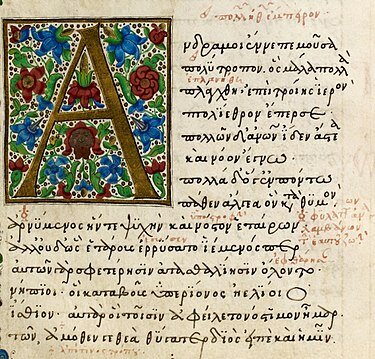 Α
νδρα μοι ἔννεπε μοῦσα
πολύτροπον. ὃς μάλα πολλὰ
πλάγχθη. ἐπεὶ τροίης ἱερὸν
πτολίεθρον ἔπερσε
πολλῶν δ' ἀνων ἴδεν ἄστεα
καὶ νόον ἔγνω
πολλὰ δ' ὅγ' ἐν πόντω
πάθεν ἄλγεα ὃν κατὰ θυμὸν
ἀρνύμενος ἥν τε ψυχὴν καὶ νόστον ἑταίρων
ἀλλ' οὐδ' ὣς ἑτάρους ἐρρύσατο ἱέμενός περ
αὐτῶν γὰρ σφετέρησιν ἀτασθαλίησιν ὄλοντο
νήπιοι. οἳ κατὰ βοῦς ὑπερίονος ἠελίοιο
ἤσθιον. αὐτὰρ ὁ τοῖσιν ἀφείλετο νόστιμον ἦμαρ
τῶν ἁμόθεν γε θεὰ θύγατερ διὸς εἰπὲ καὶ ἡμῖν.